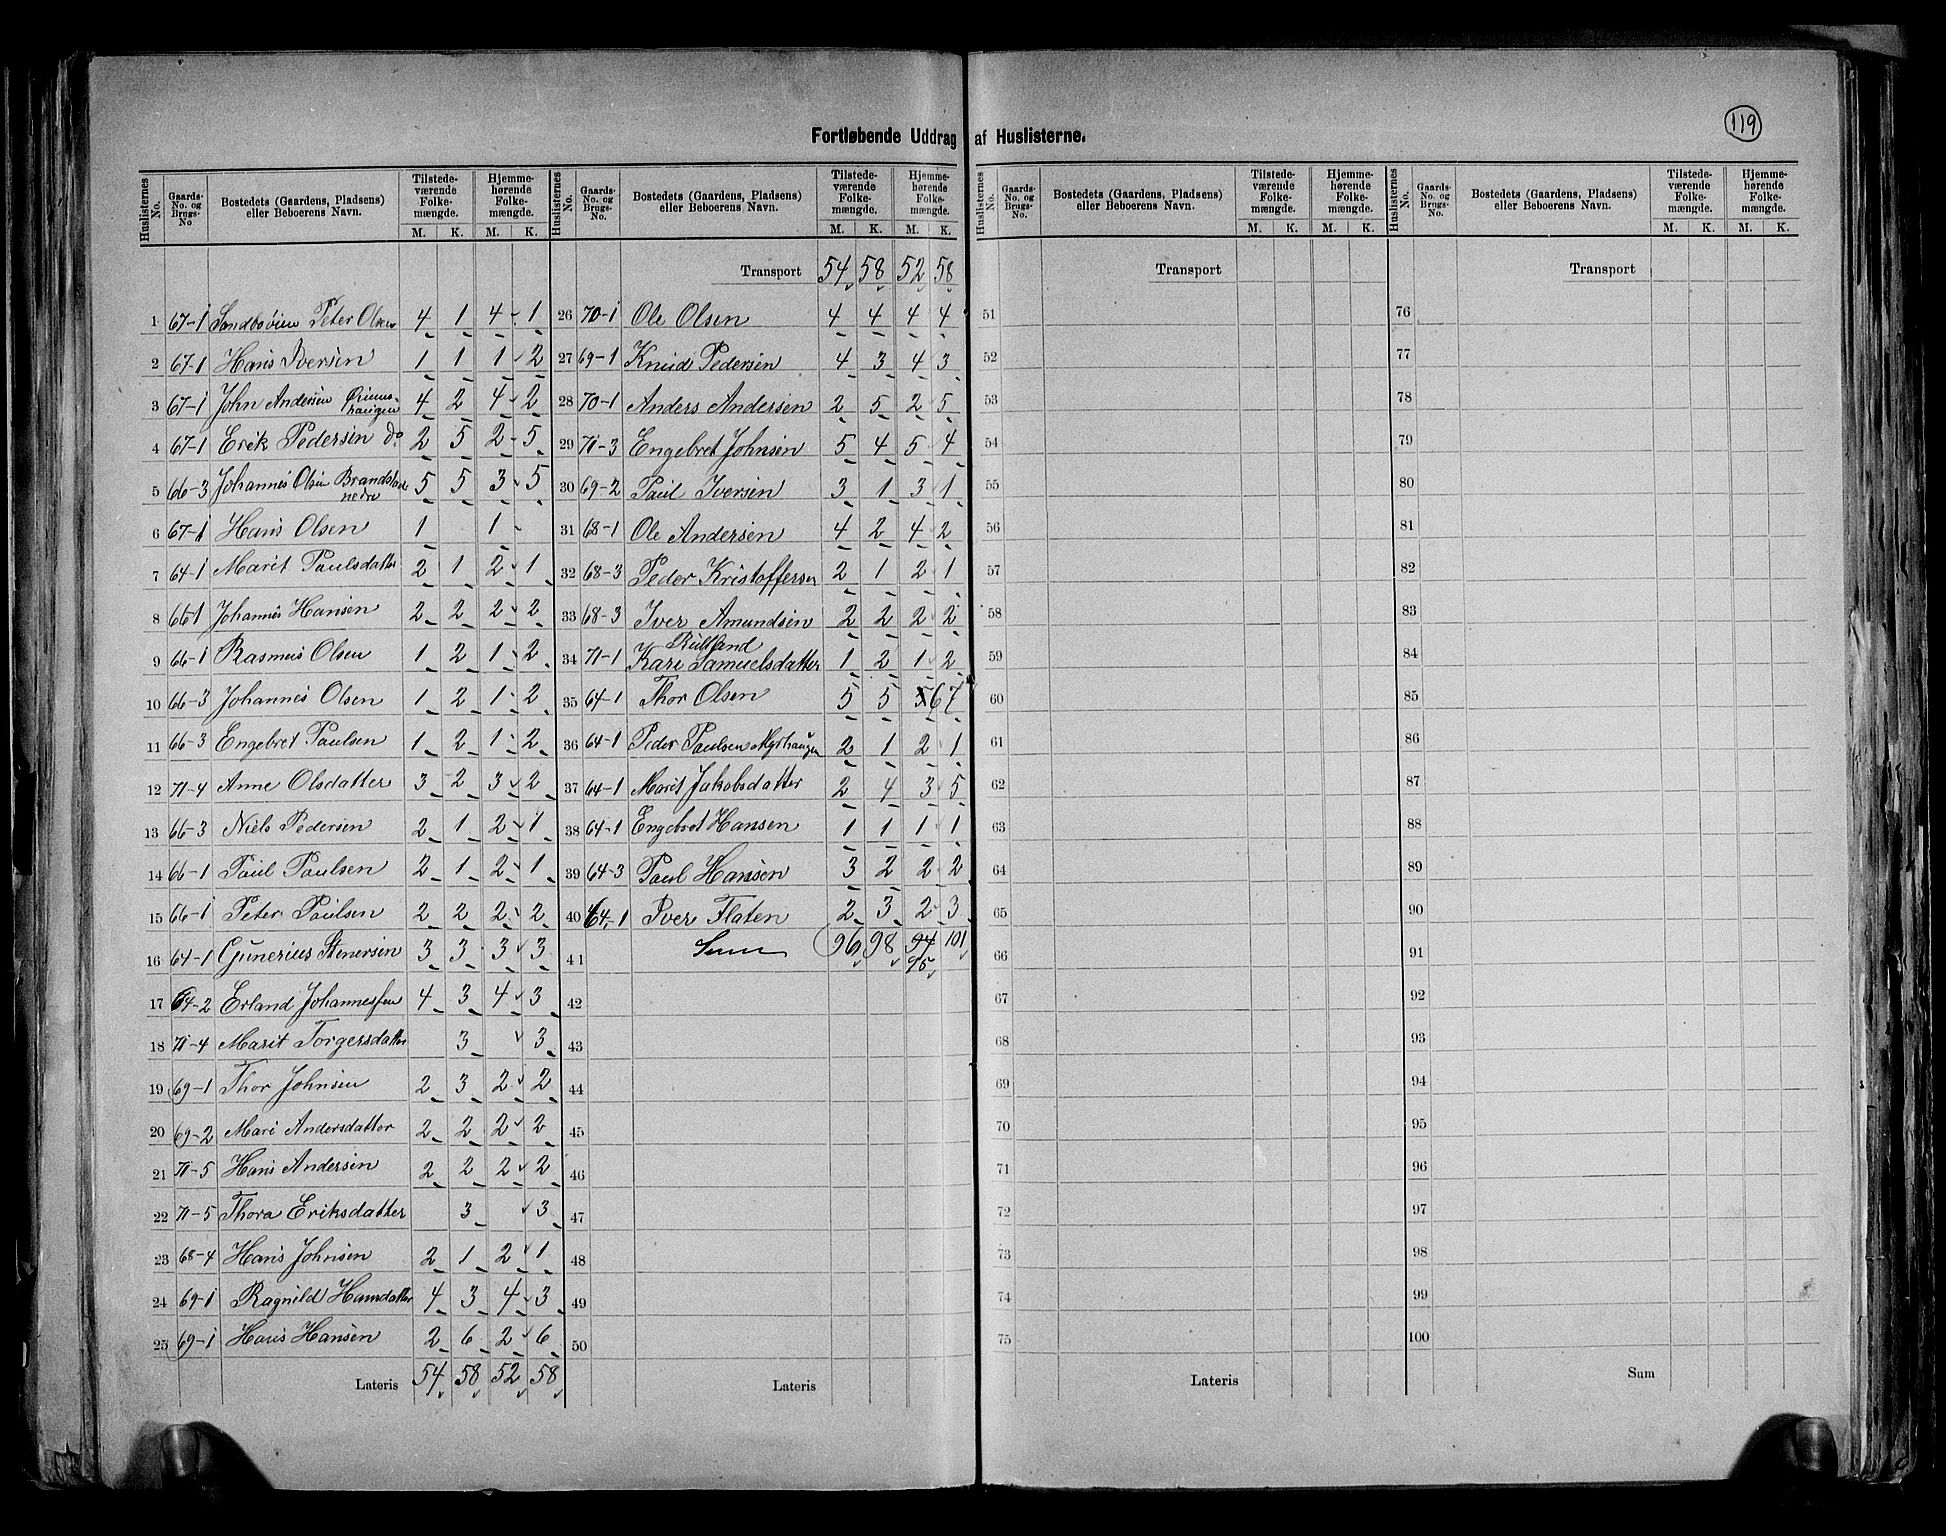 119
Fortløbende Uddrag af Huslisterne.
Huslisternes No. Gaards-No. og Brugs-No Bostedets (Gaardens, Pladsens) eller Beboerens Navn. Tilstede-værende Folke-mængde. Hjemme-hørende Folke-mængde.
M. K. M. K.
1 67-1 Sandbovien Peter Olsen 4 1 4 1
2 67-1 Hans Iversen 1 1 1 2
3 67-1 John Andersen haugen 4 2 4 2
4 67-1 Erik Pedersen do 2 5 2 5
5 66-3 Johannes Olsen nedre 5 5 3 5
6 67-1 Hans Olsen 1 1
7 64-1 Marit Paulsdatter 2 1 2 1
8 66-1 Johannes Hansen 2 2 2 2
9 66-1 Rasmus Olsen 1 2 1 2
10 66-3 Johannes Olsen 1 2 1 2
11 66-3 Engebret Paulsen 1 2 1 2
12 71-4 Anne Olsdatter 3 2 3 2
13 66-3 Niels Pedersen 2 1 2 1
14 66-1 Paul Paulsen 2 1 2 1
15 66-1 Peter Paulsen 2 2 2 2
16 64-1 Gunerius Stenersen 3 3 3 3
17 64-2 Erland Johannesen 4 3 4 3
18 71-4 Marit Torgersdatter 3 3
19 69-1 Thor Johnsen 2 3 2 2
20 69-2 Mari Andersdatter 2 2 2 2
21 71-5 Hans Andersen 2 2 2 2
22 71-5 Thora Eriksdatter 3 3
23 68-4 Hans Johnsen 2 1 2 1
24 69-1 Ragnild Hansdatter 4 3 4 3
25 69-1 Hans Hansen 2 6 2 6
Lateris 54 58 52 58
Huslisternes No. Gaards-No. og Brugs-No. Bostedets (Gaardens, Pladsens) eller Beboerens Navn. Tilstede-værende Folke-mængde. Hjemme-hørende Folke-mængde.
M. K. M. K.
Transport 54 58 52 58
26 70-1 Ole Olsen 4 4 4 4
27 69-1 Knud Pedersen 4 3 4 3
28 70-1 Anders Andersen 2 5 2 5
29 71-3 Engebret Johnsen 5 4 5 4
30 69-2 Paul Iversen 3 1 3 1
31 68-1 Ole Andersen 4 2 4 2
32 68-3 Peder Kristoffersen 2 1 2 1
33 68-3 Iver Amundsen 2 2 2 2
34 71-1 Kari Samuelsdatter 1 2 1 2
35 64-1 Thor Olsen 5 5 5 6 7
36 64-1 Peder Paulsen Myrhaugen 2 1 2 1
37 64-1 Marit Jakobsdatter 2 4 3 5
38 64-1 Engebret Hansen 1 1 1 1
39 64-3 Paul Hansen 3 2 2 2
40 64-1 Iver Flaten 2 3 2 3
41 Sum 96 98 94 101
95
42
43
44
45
46
47
48
49
50
Lateris
Huslisternes No. Gaards-No. og Brugs-No. Bostedets (Gaardens, Pladsens) eller Beboerens Navn. Tilstede-værende Folke-mængde. Hjemme-hørende Folke-mængde.
M. K. M. K.
Transport
51
52
53
54
55
56
57
58
59
60
61
62
63
64
65
66
67
68
69
70
71
72
73
74
75
Lateris
Huslisternes No. Gaards-No. og Brugs-No. Bostedets (Gaardens, Pladsens) eller Beboerens Navn. Tilstede-værende Folke-mængde. Hjemme-hørende Folke-mængde.
M. K. M. K.
Transport
76
77
78
79
80
81
82
83
84
85
86
87
88
89
90
91
92
93
94
95
96
97
98
99
100
Sum